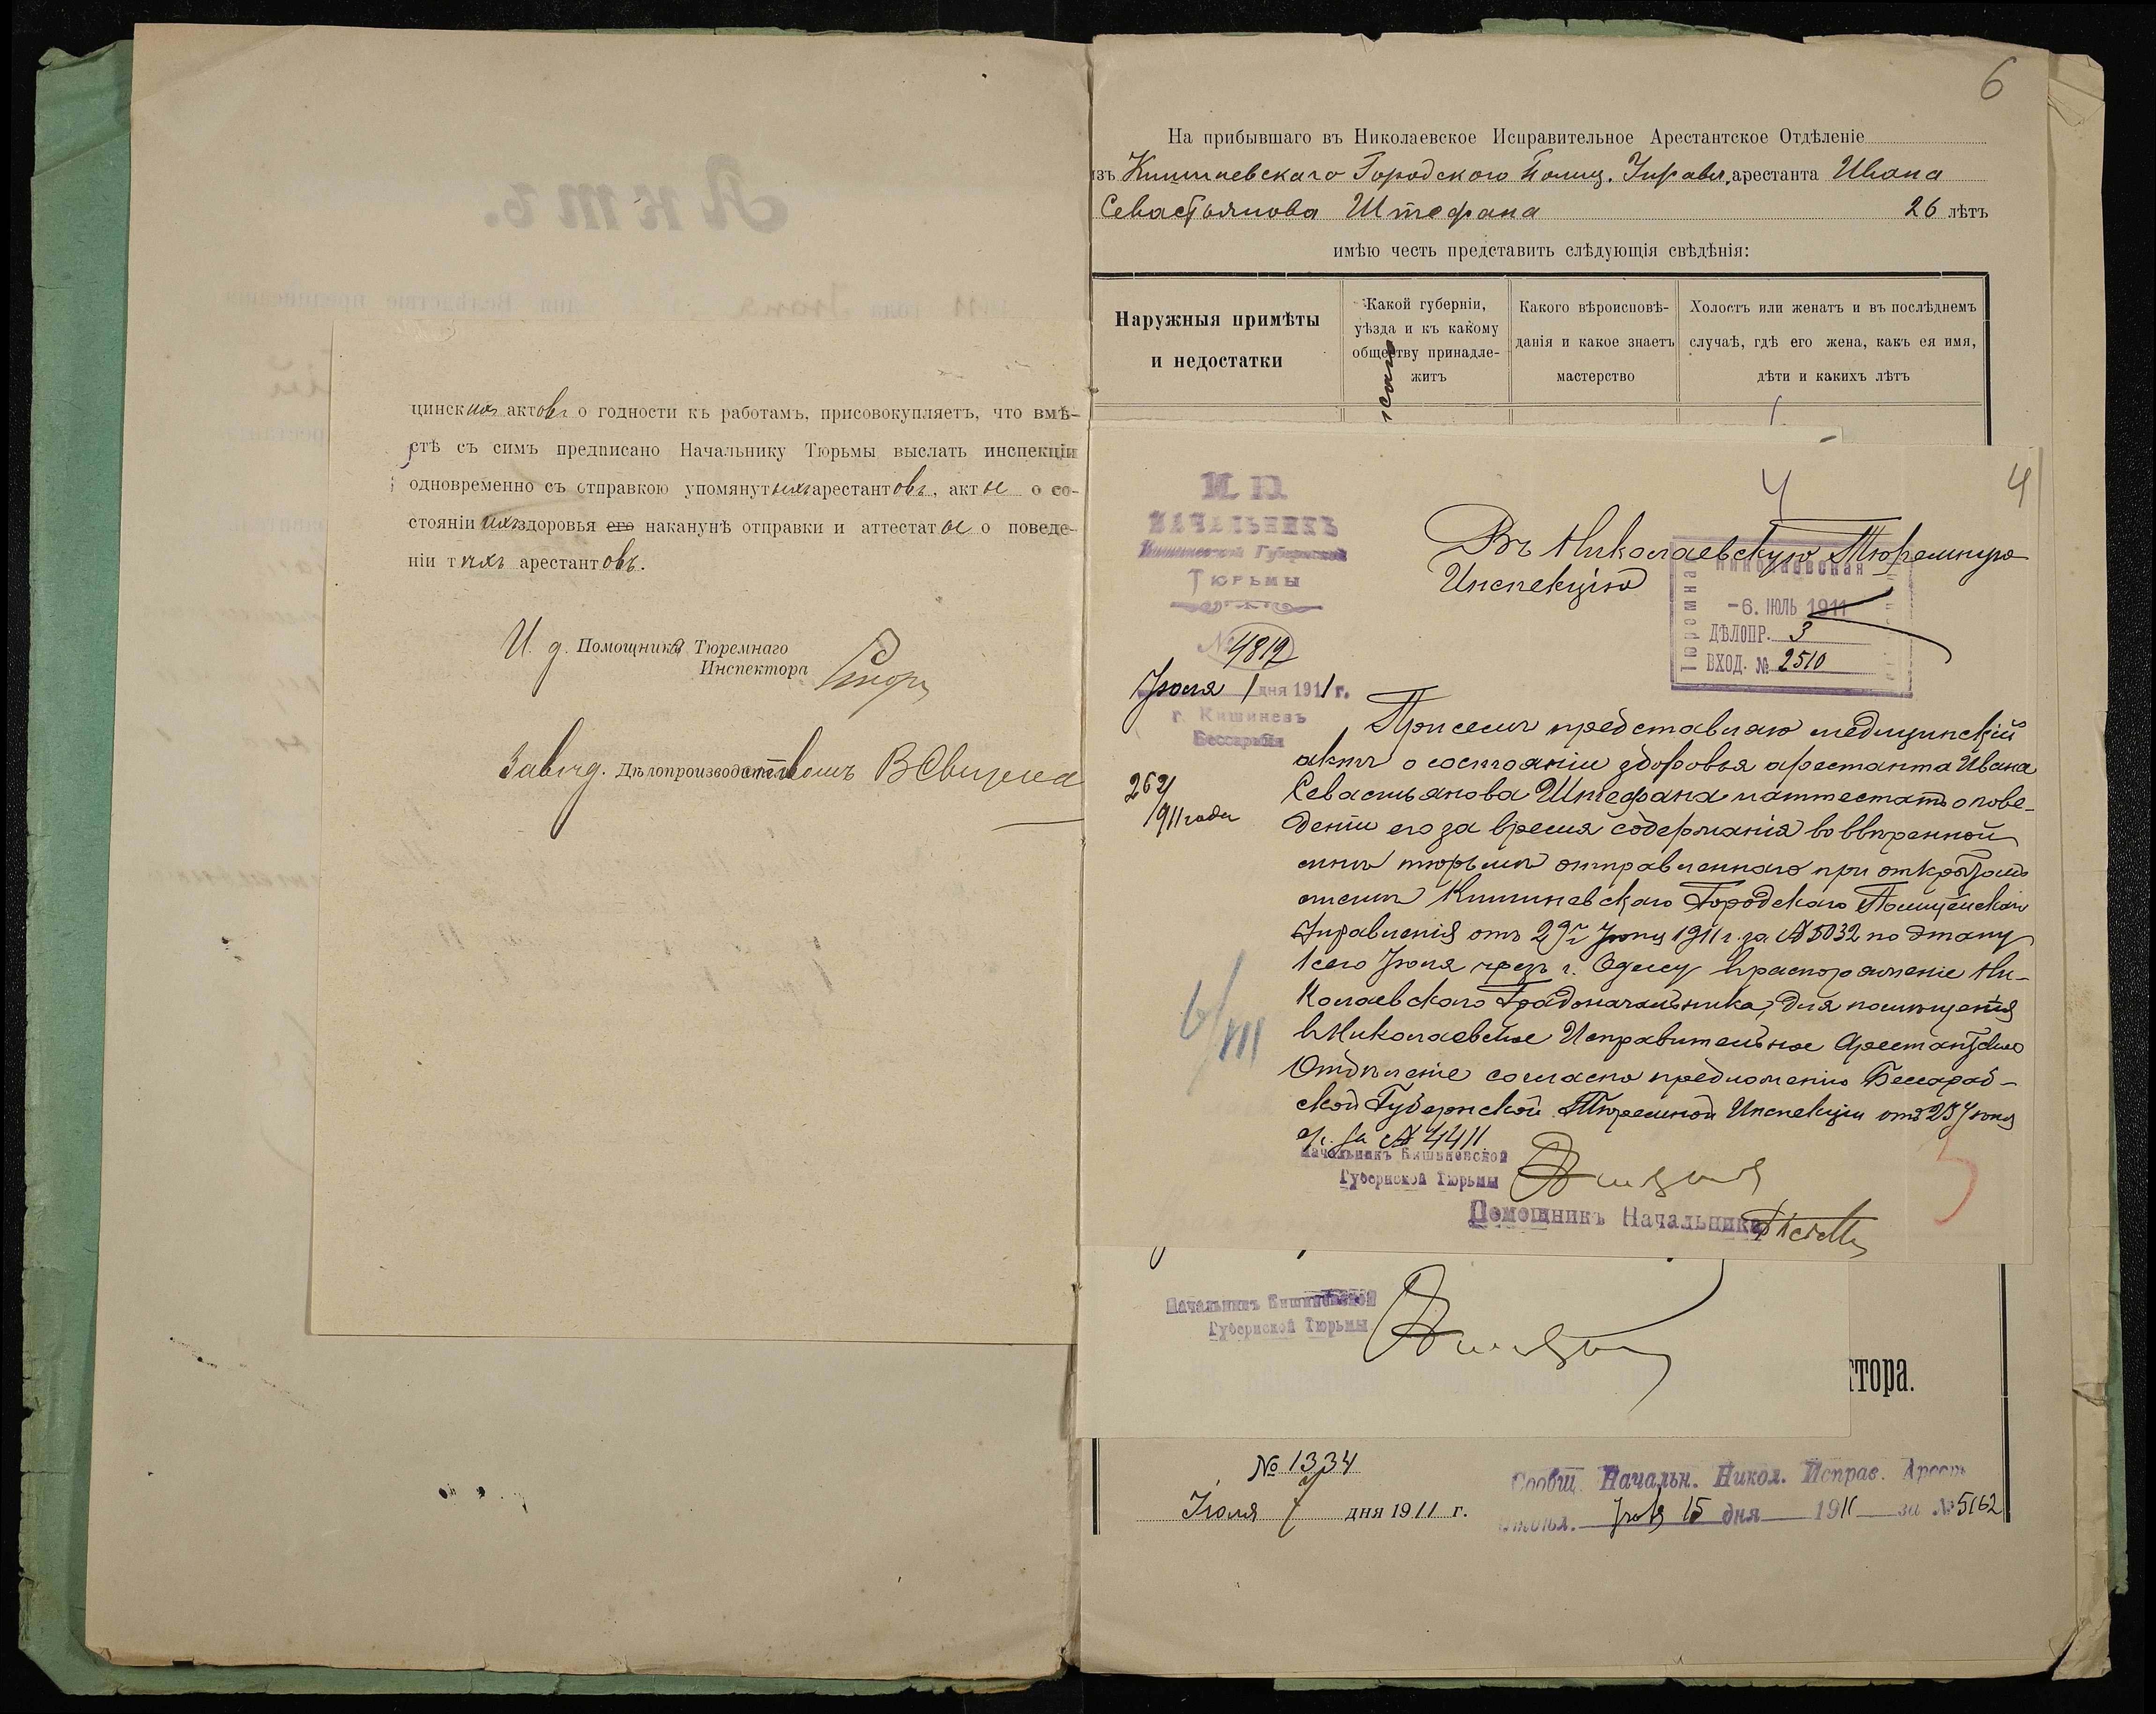 цинскихъ актовъ о годности къ работамъ, присовокупляетъ, что вмѣ-
стѣ съ симъ предписано Начальнику Тюрьмы выслать инспекціи
одновременно съ отправкою упомянутыхъ арестантовъ, акты о со-
стояніи ихъ здоровья его наканунѣ отправки и аттестаты о поведе-
ніи тѣхъ арестантовъ.
И. д. Помощника Тюремнаго
Инспектора
Завѣд. Дѣлопроизводствомъ
6
На прибывшаго въ Николаевское Исправительное Арестантское Отдѣленіе
изъ Кишиневскаго Городского Полиц. Управл. арестанта Ивана
Севастьянова Штефана 26 лѣтъ
имѣю честь представить слѣдующія свѣдѣнія:
Наружныя примѣты
и недостатки
Какой губерніи,
уѣзда и къ какому
обществу принадле-
житъ
Какого вѣроисповѣ-
данія и какое знаетъ
мастерство
Холостъ или женатъ и въ послѣднемъ
случаѣ, гдѣ его жена, какъ ея имя,
дѣти и какихъ лѣтъ
4
4
М. Ю.
НАЧАЛЬНИКЪ
Кишиневской Губернской
Тюрьмы
№ 4812
Іюля 1 дня 1911 г.
г. Кишиневъ
Бессарабія
262
1911 года
Въ Николаевскую Тюремную
Инспекцію
Николаевская
Тюремная
-6. ІЮЛЬ 1911
ДѢЛОПР. 3
ВХОД. № 2510
При семъ представляю медицинскій
актъ о состояніи здоровья арестанта Ивана
Севастьянова Штефана и аттестатъ о пове-
деніи его за время содержанія во ввѣренной
мнѣ тюрьмѣ отправленнаго при открытомъ
листѣ Кишиневскаго Городского Полицейскаго
Управленія отъ 29го Іюня 1911 г. за № 5032 по этапу
1 сего Іюля чрезъ г. Одессу въ распоряженіе Ни-
колаевскаго Градоначальника, для помѣщенія
въ Николаевское Исправительное Арестантское
Отдѣленіе согласно предложенію Бессараб-
ской Губернской Тюремной Инспекціи отъ 25 Іюня
с/г. за № 4411
Начальникъ Кишиневской
Губернской Тюрьмы
Помощникъ Начальника
6/VII
5
Начальникъ Кишиневской
Губернской Тюрьмы
ктора.
№ 1334
Іюля 7 дня 1911 г.
Сообщ. Начальн. Никол. Исправ. Арест.
Отдѣл. Іюля 15 дня 1911 за № 5162